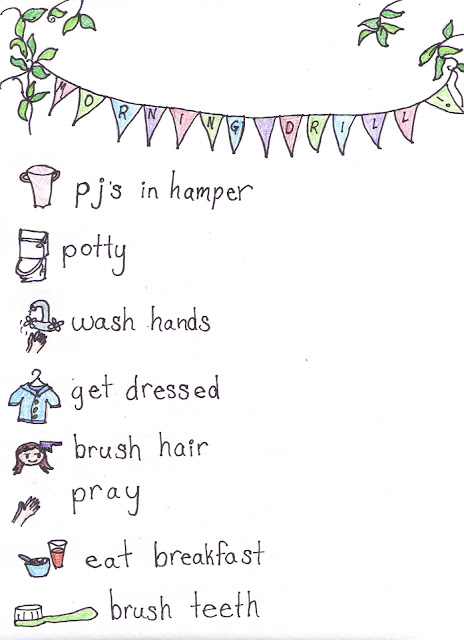 MORNING DRILL!
pj's in hamper
potty
wash hands
get dressed
brush hair
pray
eat breakfast
brush teeth